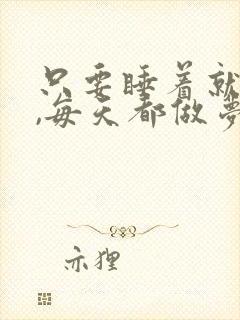 只要睡着就
,每天都做梦
亦狸